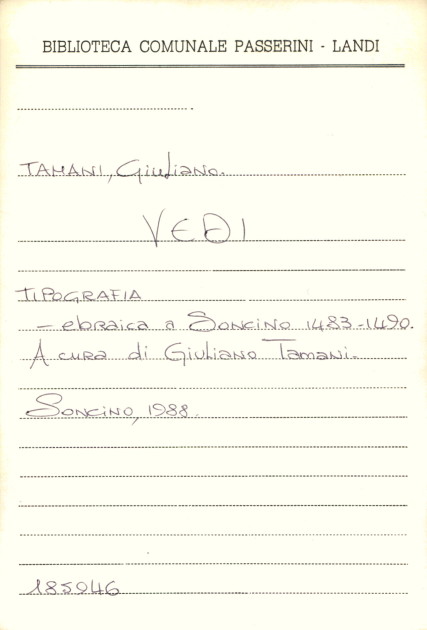 BIBLIOTECA COMUNALE PASSERINI - LANDI
TAMANI, Giuliano.
VEDI
TIPOGRAFIA
- ebraica a Soncino 1483-1490.
A cura di Giuliano Tamani.
Soncino, 1988.
185946